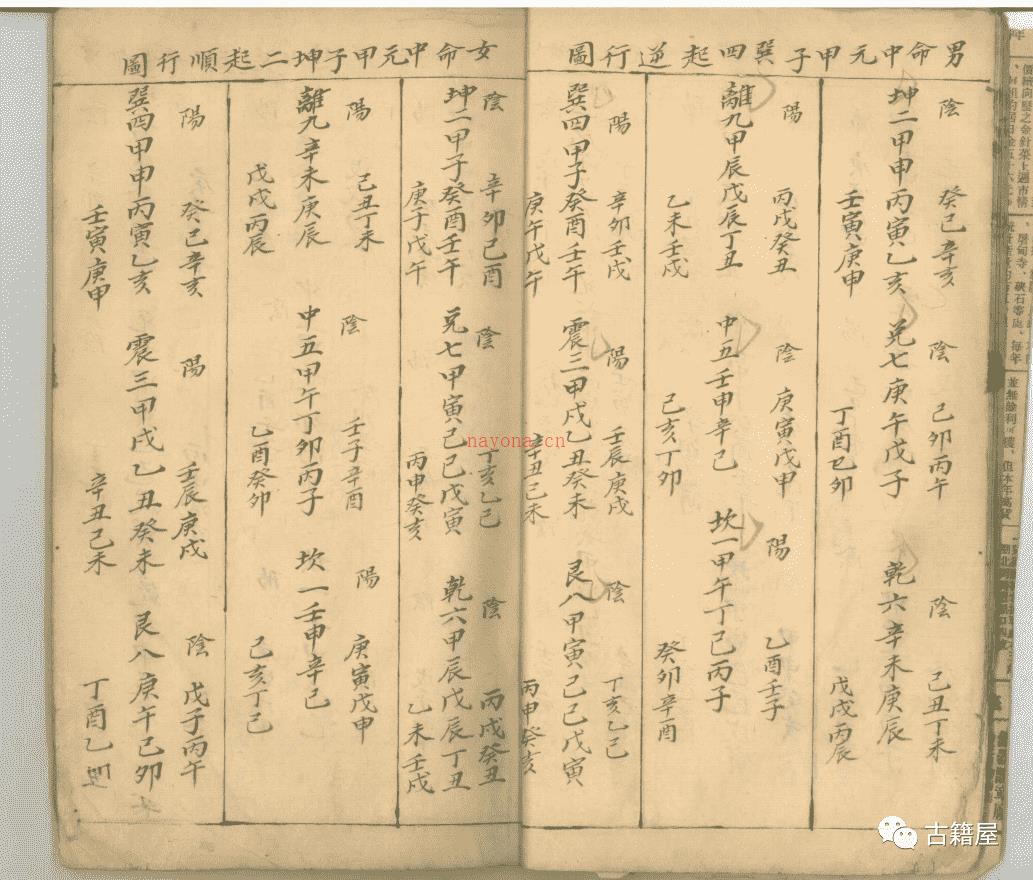 男命中元甲子巽四起逆行圖
陰 癸己辛亥 陰 己卯丙午 陰 己丑丁未
坤二甲申丙寅乙亥 兌七庚午戊子 乾六辛未庚辰
壬寅庚申 丁酉己卯 戊戌丙辰
陽 丙戌癸丑 陰 庚寅戊申 陽 乙酉壬子
離九甲辰戊辰丁丑 中五壬申辛己 坎一甲午丁己丙子
乙未壬戌 己亥丁卯 癸卯辛酉
陽 辛卯壬戌 陽 壬辰庚戌 陰 丁亥乙己
巽四甲子癸酉壬午 震三甲戌乙丑癸未 艮八甲寅己己戊寅
庚午戊午 辛丑己未 丙申癸亥
女命中元甲子坤二起順行圖
陰 辛卯己酉 陰 丁亥乙己 陰 丙戌癸丑
坤二甲子癸酉壬午 兌七甲寅己己戊寅 乾六甲辰戊辰丁丑
庚子戊午 丙申癸亥 乙未壬戌
陽 己丑丁未 陰 壬子辛酉 陽 庚寅戊申
離九辛未庚辰 中五甲午丁卯丙子 坎一壬申辛己
戊戌丙辰 乙酉癸卯 己亥丁己
陽 癸己辛亥 陽 壬辰庚戌 陰 戊子丙午
巽四甲申丙寅乙亥 震三甲戌乙丑癸未 艮八庚午己卯
壬寅庚申 辛丑己未 丁酉乙
nayona.cn
古籍屋